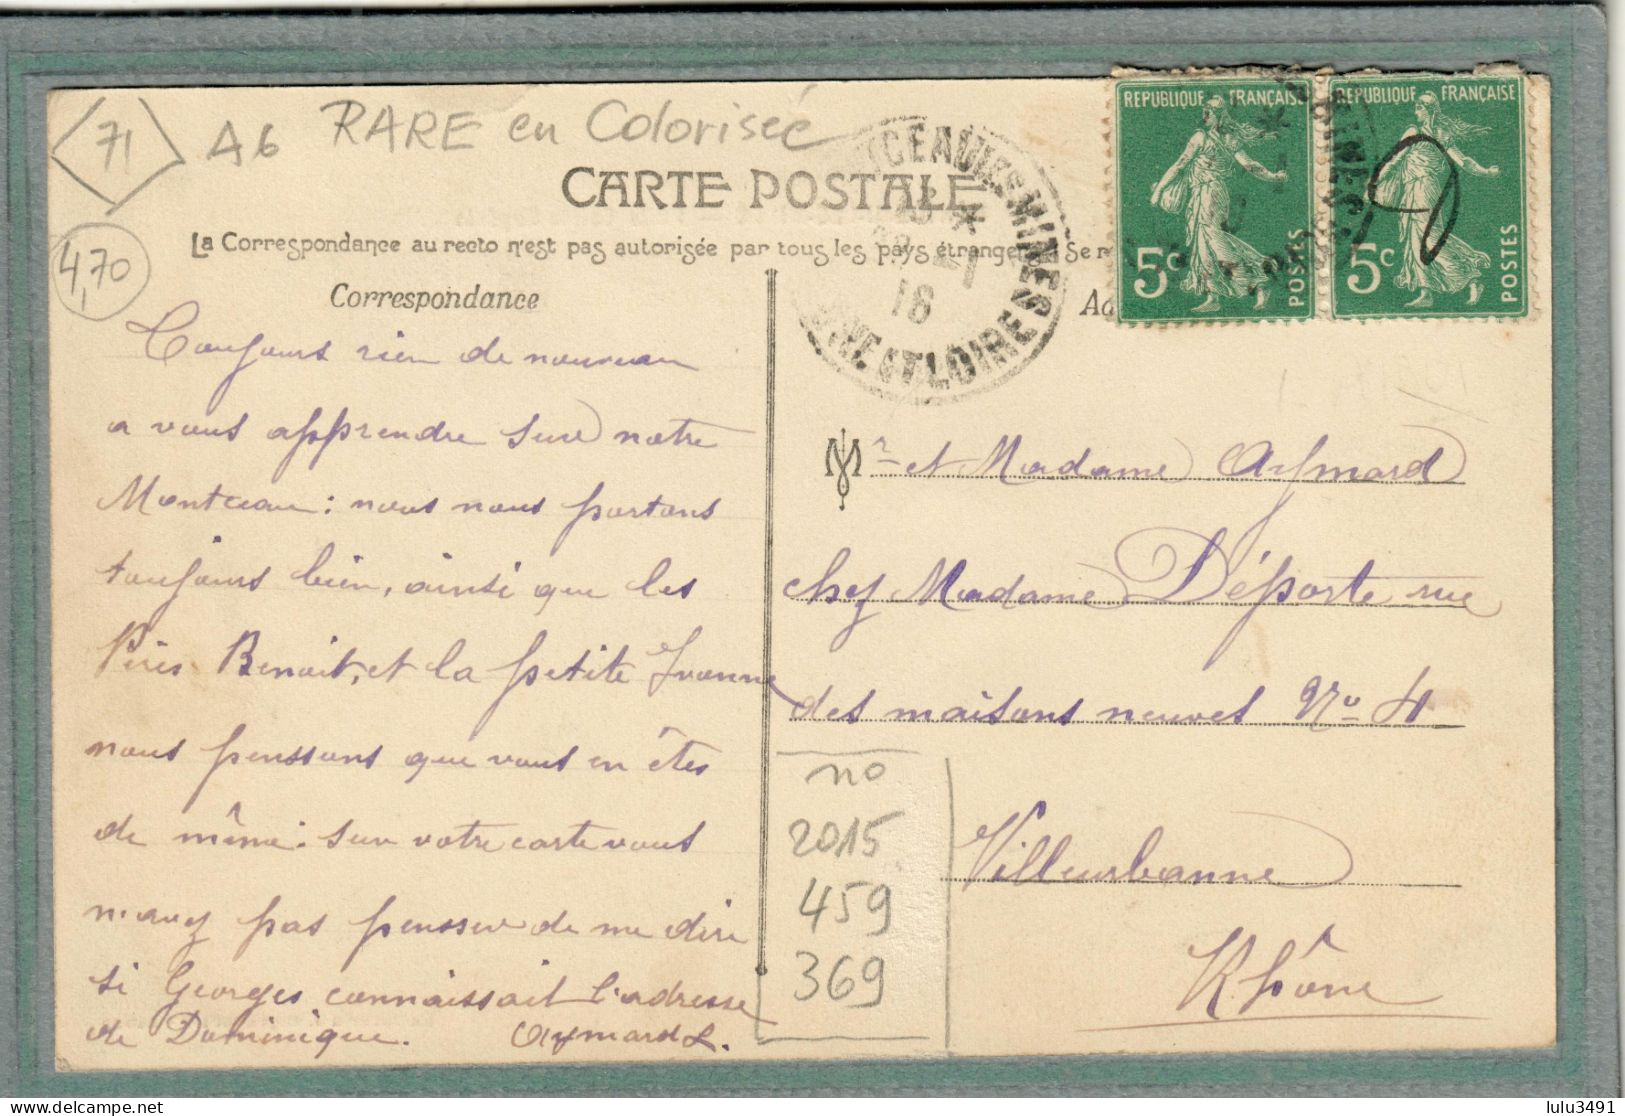 71
A6 RARE en Colorisée
4,70
CARTE POSTALE
La Correspondance au recto n'est pas autorisée par tous les pays étrangers Se r
Correspondance
Toujours rien de nouveau
a vous apprendre sure notre
Montceau : nous nous portons
toujours bien, ainsi que les
Péres Benoit, et la petite Yvonne
nous penssons que vous en êtes
de même : sur votre carte vous
n'avez pas pensser de me dire
si Georges connaissait l'adresse
de Dominique. Aymard L.
MONTCEAU LES MINES
18 * -1 16
SAONE ET LOIRE
REPUBLIQUE FRANÇAISE
5c
POSTES
REPUBLIQUE FRANÇAISE
5c
POSTES
Mr et Madame Aymard
chez Madame Déporte rue
des maisons neuves No 4
Villeurbanne
Rhône
no
2015
459
369
www.delcampe.net
lulu3491